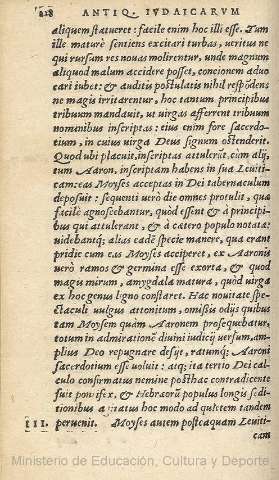 218 ANTIQ. IVDAICARVM
aliquem statueret: facile enim hoc illi esse. Tum
ille maturè sentiens excitari turbas, ueritus ne
qui rursum res nouas molirentur, unde magnum
aliquod malum accidere posset, concionem aduo
cari iubet: & auditis postulatis nihil respõdens
ne magis irritarentur, hoc tantum principibus
tribuum mandauit, ut uirgas afferent tribuum
nominibus inscriptas: eius enim fore sacerdo-
tium, in cuius uirga Deus signum ostenderit.
Quod ubi placuit, inscriptas attulerũt, cùm alij,
tum Aaron, inscriptam habens in sua Leuiti-
cam: eas Moyses acceptas in Dei tabernaculum
deposuit: sequenti uerò die omnes protulit, quæ
facilè agnoscebantur, quòd essent & à principi-
bus qui attulerant, & à cætero populo notatæ:
uidebantq́; alias eadẽ specie manere, qua erant
pridie cum eas Moyses acciperet, ex Aaronis
uerò ramos & germina esse exorta, & quod
magis mirum, amygdala matura, quòd uirga
ex hoc genus ligno constaret. Hac nouitate spe-
ctaculi uulgus attonitum, omißis odijs quibus
tam Moysem quàm Aaronem prosequebatur,
totum in admirationẽ diuini iudicij uersum, am-
plius Deo repugnare desijt, ratumq́; Aaroni
sacerdotium esse uoluit: atq; ita tertio Dei cal-
culo confirmatus nemine posthac contradicente
fuit pontifex, & Hebræorũ populus longis sedi-
tionibus agitatus hoc modo ad quietem tandem
III. peruenit. Moyses autem posteaquam Leuiti-
cam
Ministerio de Educación, Cultura y Deporte